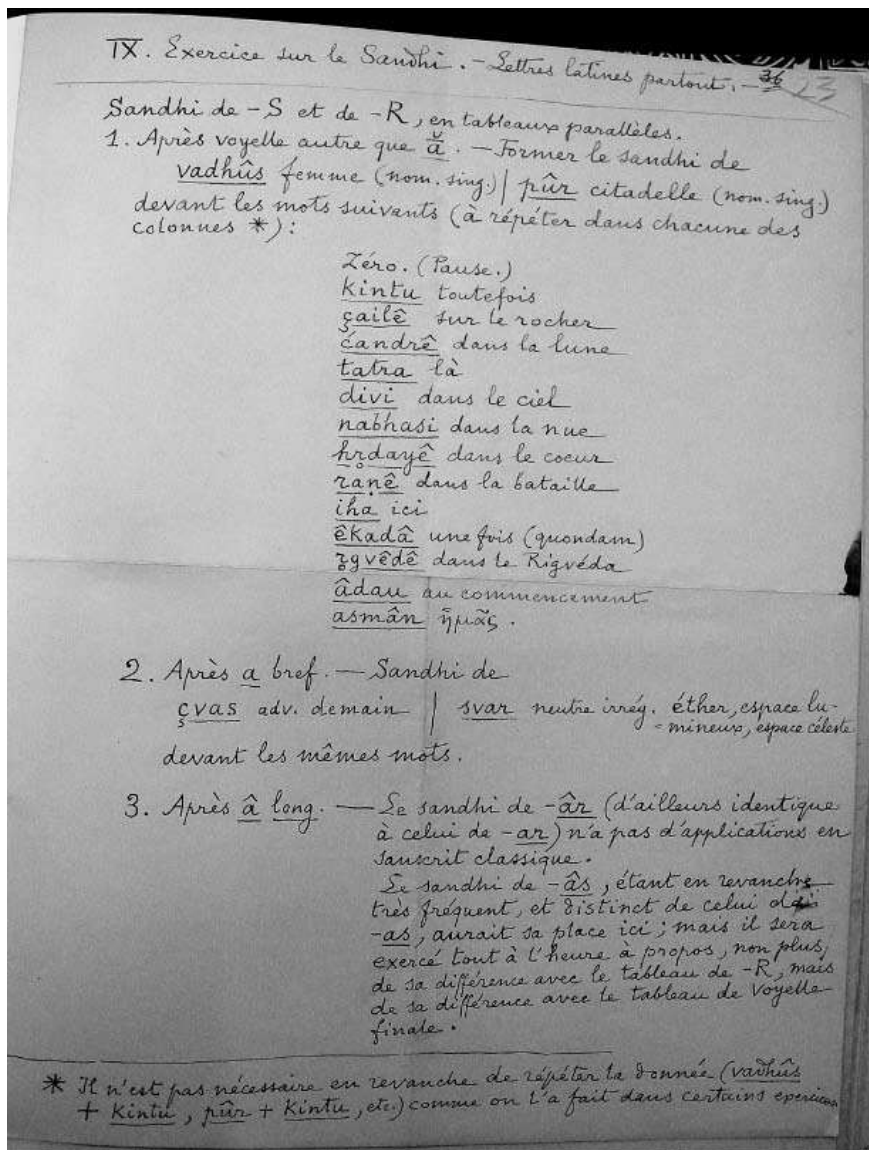 IX. Exercice sur le Sandhi. – Lettres latines partout. – 36 23
Sandhi de -S et de -R, en tableaux parallèles.
1. Après voyelle autre que ā̆. – Former le sandhi de
vadhûs femme (nom. sing.) | pûr citadelle (nom. sing.)
devant les mots suivants (à répéter dans chacune des
colonnes *):
Zéro. (Pause.)
kintu toutefois
çailê sur le rocher
ćandrê dans la lune
tatra là
divi dans le ciel
nabhasi dans la nue
hr̥dayê dans le coeur
raṇê dans la bataille
iha ici
êkadâ une fois (quondam)
r̥gvêdê dans le Rigvéda
âdau au commencement
asmân ἡμᾶς.
2. Après a bref. – Sandhi de
çvas adv. demain | svar neutre irrég. éther, espace lu-
mineux, espace céleste
devant les mêmes mots.
3. Après â long. – Le sandhi de -âr (d'ailleurs identique
à celui de -ar) n'a pas d'applications en
sanscrit classique.
Le sandhi de -âs, étant en revanche
très fréquent, et distinct de celui de
-as, aurait sa place ici; mais il sera
exercé tout à l'heure à propos, non plus,
de sa différence avec le tableau de -R, mais
de sa différence avec le tableau de Voyelle
finale.
* Il n'est pas nécessaire en revanche de répéter la donnée (vadhûs
+ kintu, pûr + kintu, etc.) comme on l'a fait dans certains exercices